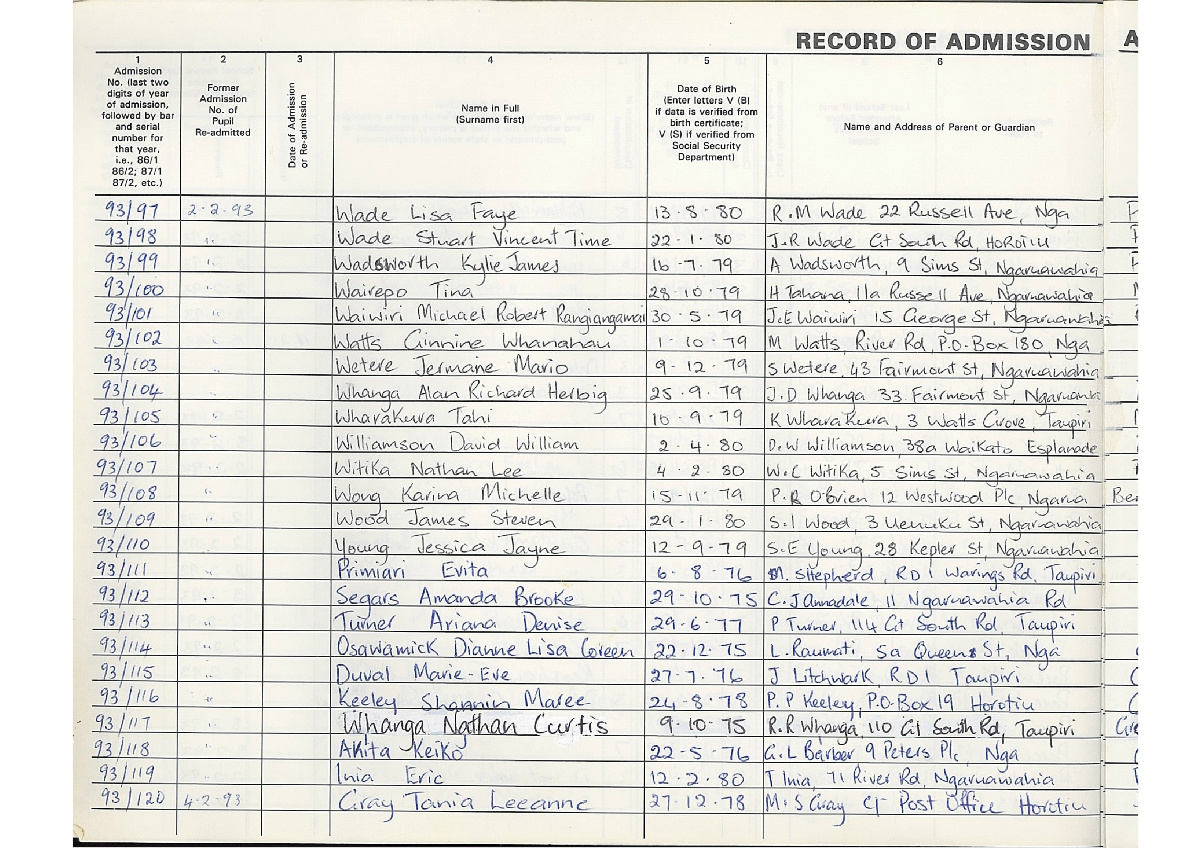 RECORD OF ADMISSION A
1 2 3 4 5 6
Admission No. (last two digits of year of admission, followed by bar and serial number for that year, i.e., 86/1 86/2; 87/1 87/2, etc.)
Former Admission No. of Pupil Re-admitted
Date of Admission or Re-admission
Name in Full (Surname first)
Date of Birth (Enter letters V (B) if data is verified from birth certificate; V (S) if verified from Social Security Department)
Name and Address of Parent or Guardian
93/97 2-2-93 Wade Lisa Faye 13-8-80 R.M Wade 22 Russell Ave, Nga
93/98 " Wade Stuart Vincent Time 22-1-80 J.R Wade Gt South Rd, HOROTIU
93/99 " Wadsworth Kylie James 16-7-79 A Wadsworth, 9 Sims St, Ngaruawahia
93/100 " Wairepo Tina 28-10-79 H Tahana, 11a Russell Ave, Ngaruawahia
93/101 " Waiwiri Michael Robert Rangiangamai 30-5-79 J.E Waiwiri 15 George St, Ngaruawahia
93/102 " Watts Ginnine Whanahau 1-10-79 M Watts, River Rd, P.O-Box 180, Nga
93/103 " Wetere Jermaine Mario 9-12-79 S Wetere, 43 Fairmont St, Ngaruawahia
93/104 " Whanga Alan Richard Herbig 25-9-79 J.D Whanga 33 Fairmont St,
93/105 " Wharakura Tahi 10-9-79 K Wharakura, 3 Watts Grove, Taupiri
93/106 " Williamson David William 2-4-80 D.W Williamson, 38a Waikato Esplanade
93/107 " Witika Nathan Lee 4-2-80 W.C Witika, 5 Sims St, Ngaruawahia
93/108 " Wong Karina Michelle 15-11-79 P.R O'Brien 12 Westwood Plc Ngarua Ber
93/109 " Wood James Steven 29-1-80 S.I Wood, 3 Uenuku St, Ngaruawahia
93/110 " Young Jessica Jayne 12-9-79 S.E Young, 28 Kepler St, Ngaruawahia
93/111 " Primiari Evita 6-8-76 M. Shepherd, RD1 Warings Rd, Taupiri
93/112 " Segars Amanda Brooke 29-10-75 C.J Annadale, 11 Ngaruawahia Rd
93/113 " Turner Ariana Denise 29-6-77 P Turner, 114 Gt South Rd, Taupiri
93/114 " Osawamick Dianne Lisa Green 22-12-75 L.Raumati, 5a Queens St, Nga
93/115 " Duval Marie-Eve 27-7-76 J Litchwark, RD1 Taupiri
93/116 " Keeley Shannin Maree 24-8-78 P.P Keeley, P.O-Box 19 Horotiu
93/117 " Whanga Nathan Curtis 9-10-75 R.R Whanga, 110 Gt South Rd, Taupiri Gre
93/118 " Akita Keiko 22-5-76 G.L Barber 9 Peters Plc, Nga
93/119 " Inia Eric 12-2-80 T Inia, 71 River Rd, Ngaruawahia
93/120 4-2-93 Gray Tania Leeanne 27-12-78 M.S Gray C/- Post Office Horotiu